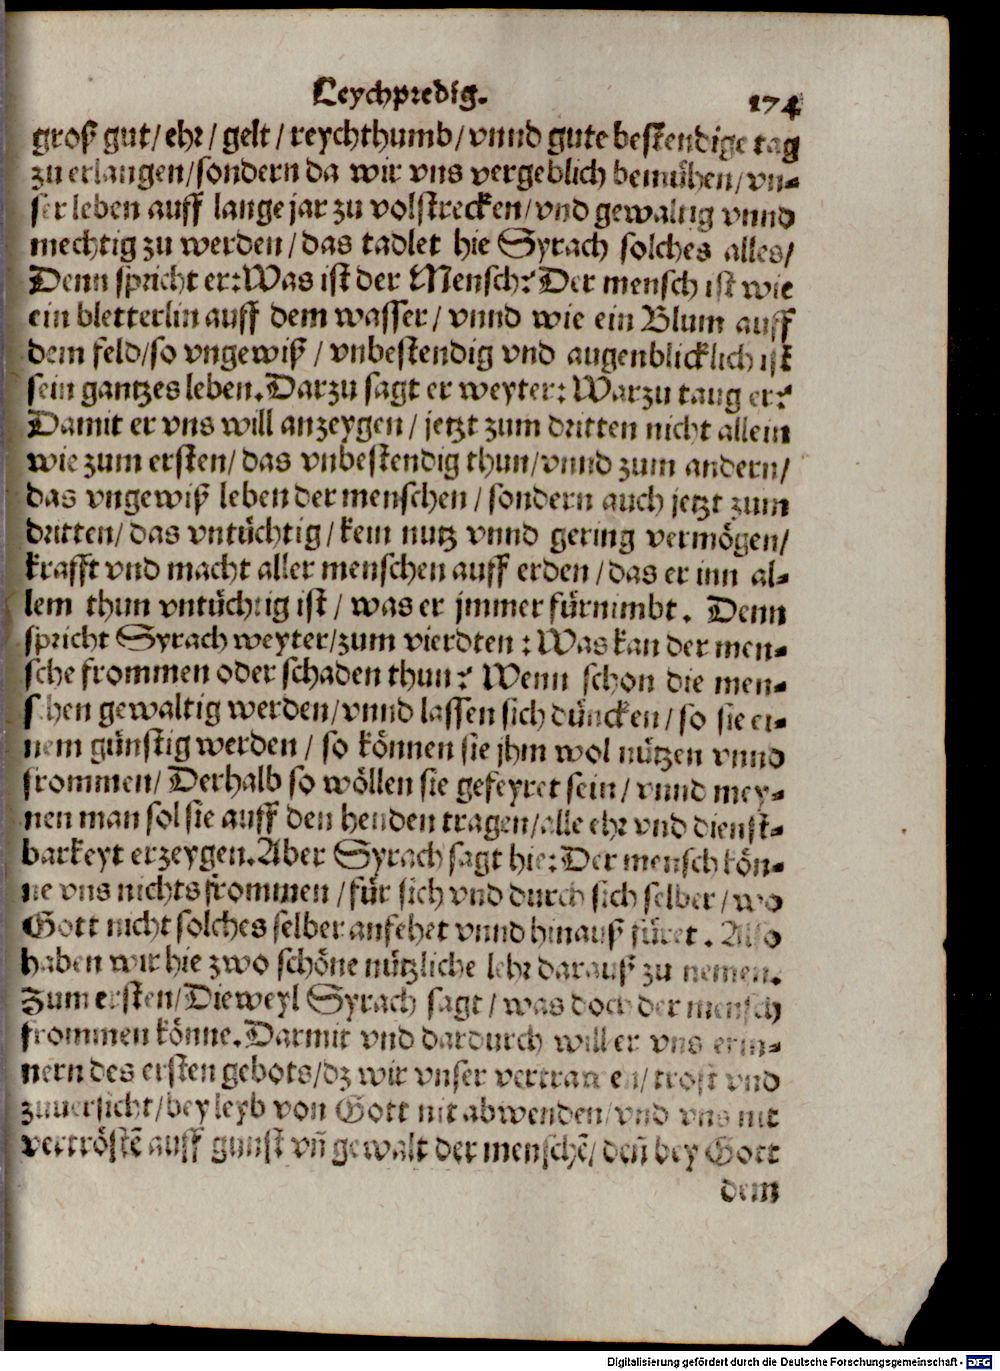 Leychpredig. 174
groß gut/ ehr/ gelt/ reychthumb/ vnnd gute bestendige tag
zu erlangen/ sondern da wir vns vergeblich bemühen/ vn-
ser leben auff lange jar zu volstrecken/ vnd gewaltig vnnd
mechtig zu werden/ das tadlet hie Syrach solches alles/
Denn spricht er: Was ist der Mensch? Der mensch ist wie
ein bletterlin auff dem wasser/ vnnd wie ein Blum auff
dem feld/ so vngewiß/ vnbestendig vnd augenblicklich ist
sein gantzes leben. Darzu sagt er weyter: Warzu taug er?
Damit er vns will anzeygen/ jetzt zum dritten nicht allein
wie zum ersten/ das vnbestendig thun/ vnnd zum andern/
das vngewiß leben der menschen/ sondern auch jetzt zum
dritten/ das vntüchtig/ kein nutz vnnd gering vermögen/
krafft vnd macht aller menschen auff erden/ das er inn al-
lem thun vntüchtig ist/ was er jmmer fürnimbt. Denn
spricht Syrach weyter/ zum vierdten: Was kan der men-
sche frommen oder schaden thun? Wenn schon die men-
schen gewaltig werden/ vnnd lassen sich düncken/ so sie ei-
nem günstig werden/ so können sie jhm wol nützen vnnd
frommen/ Derhalb so wöllen sie gefeyret sein/ vnnd mey-
nen man sol sie auff den henden tragen/ alle ehr vnd dienst-
barkeyt erzeygen. Aber Syrach sagt hie: Der mensch kön-
ne vns nichts frommen/ für sich vnd durch sich selber/ wo
Gott nicht solches selber ansehet vnnd hinauß füret. Also
haben wir hie zwo schöne nützliche lehr darauß zu nemen.
Zum ersten/ Dieweyl Syrach sagt/ was doch der mensch
frommen könne. Darmit vnd dardurch will er vns erin-
nern des ersten gebots/ dz wir vnser vertrawen/ trost vnd
zuuersicht/ bey leyb von Gott nit abwenden/ vnd vns nit
vertröstẽ auff gunst vñ gewalt der menschẽ/ deñ bey Gott
dem
Digitalisierung gefördert durch die Deutsche Forschungsgemeinschaft - DFG